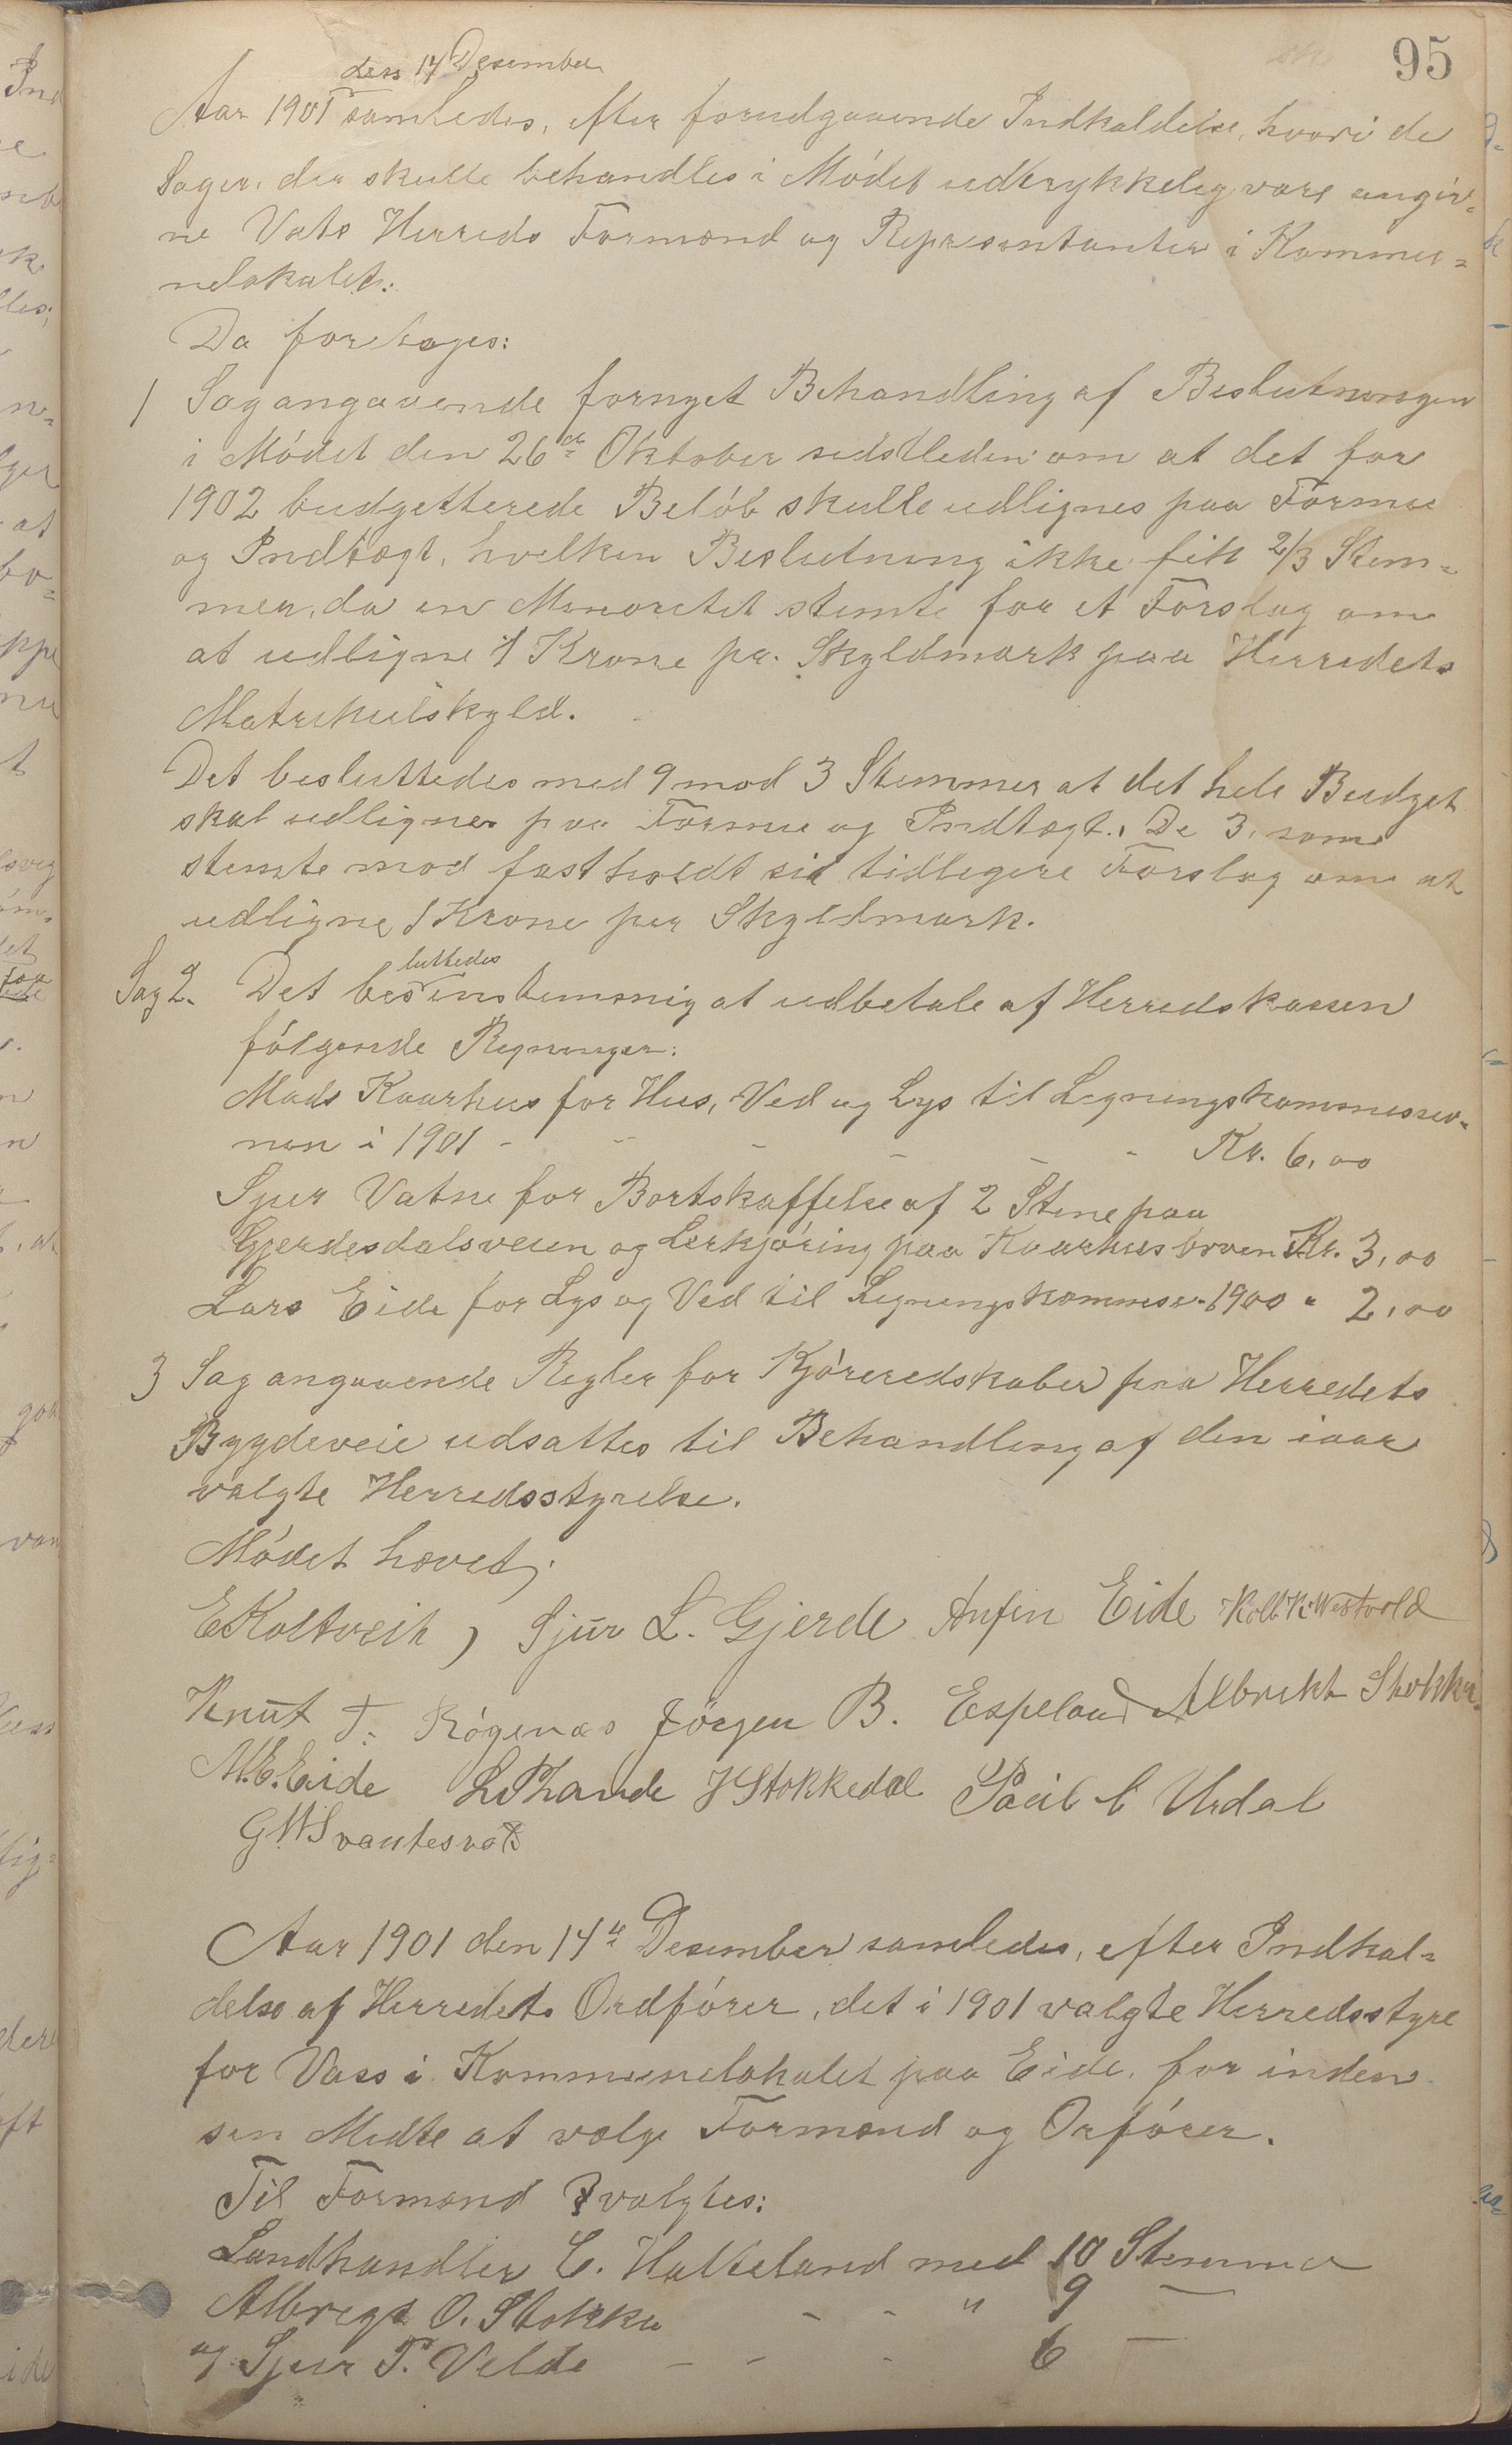 95
den 14 Desember
Aar 1901 samledes, efter forudgaaende Indkaldelse, hvori de
Sager, der skulle behandles i Mødet udtrykkelig vare angiv-
ne Vats Herreds Formænd og Repræsentanter i Kommu-
nelokalet:
Da foretages:
1 Sag angaaende fornyet Behandling af Beslutningen
i Mødet den 26de Oktober sidstleden om at det for
1902 budgetterede Beløb skulle udlignes paa Formue
og Indtægt, hvilken Beslutning ikke fik 2/3 Stem-
mer, da en Minoritet stemte for et Forslag om
at udligne 1 Krone pr. Skyldmark paa Herredets
Matrikulskyld.
Det besluttedes med 9 mod 3 Stemmer at det hele Budget
skal udlignes paa Formue og Indtægt. De 3, som
stemte mod fastholdt sit tidligere Forslag om at
udligne 1 Krone per Skyldmark.
luttedes
Sag 2. Det bes enstemmig at udbetale af Herredskassen
følgende Regninger:
Mads Kaarhus for Hus, Ved og Lys til Ligningskommissio-
nen i 1901 - - - - - - Kr. 6,00
Sjur Vatne for Bortskaffelse af 2 Stene paa
Gjerdesdalsveien og Lerkjøring paa Kaarhusbroen Kr. 3,00
Lars Eide for Lys og Ved til Ligningskommiss. 1900 " 2,00
3 Sag angaaende Regler for Kjøreredskaber paa Herredets
Bygdeveie udsattes til Behandling af den iaar
valgte Herredsstyrelse.
Mødet hævet;
E Koltveit, Sjur L. Gjerde Anfin Eide K. Westvold
Knut T. Røgenæs Jörgen B. Espeland Albrikt Stokka
M.E. Eide L P Lande J Stokkedal Poul C Urdal
G W Svantesvat
Aar 1901 den 14de Desember samledes, efter Indkal-
delse af Herredets Ordfører, det i 1901 valgte Herredsstyre
for Vass i Kommunelokalet paa Eide, for inden
sin Midte at vælge Formænd og Orfører.
Til Formænd valgtes:
Landhandler C. Halleland med 10 Stemmer
Albregt O. Stokka - - " 9 —
og Sjur P. Velde - - - 6 —